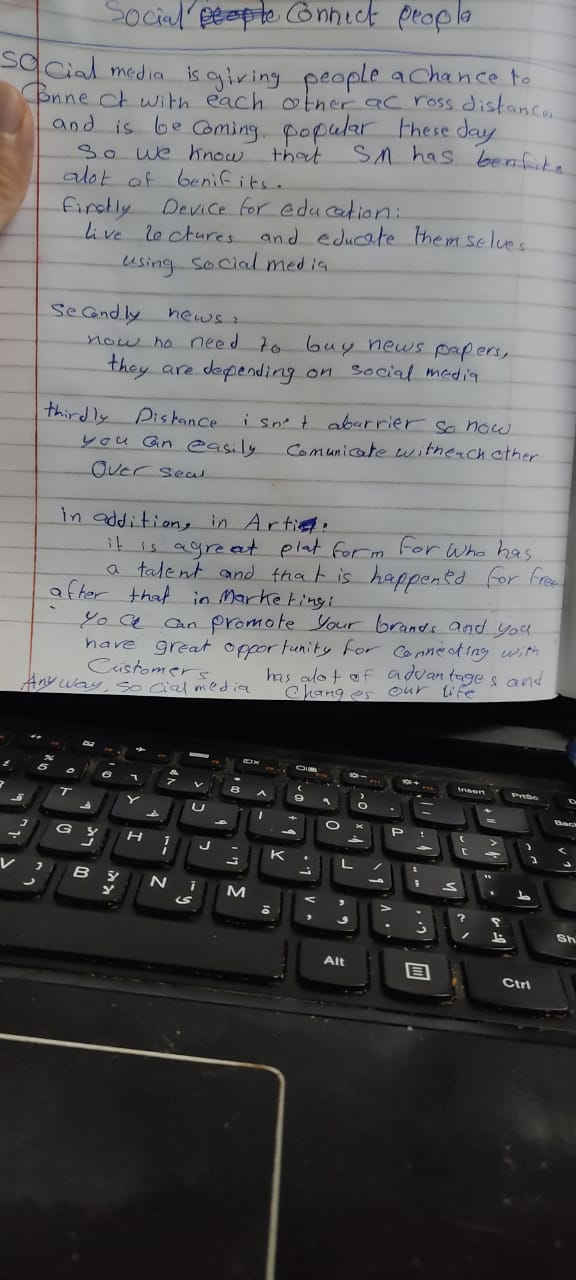 Social people Connect people
Social media is giving people a chance to
Connect with each other ac ross distance,
and is be coming. popular these day
So we know that SM has benfits
alot of benifits.
firstly Device for education:
live lectures and educate themselves
using social media
Secondly news:
now no need to buy news papers,
they are depending on social media
thirdly Distance isn't abarrier so now
you can easily Comunicate witheach other
Over seas
in addition, in Artist:
it is agreat plat form for who has
a talent and that is happened for free
after that in Marketing:
You can promote your brands and you
have great opportunity for connecting with
Customers
Anyway, Social media has alot of advantages and
Changes our life
% 5 ^ 6 & 7 * 8 ( 9 ) 0 Insert PrtSc
T Y U I O P Back
G H J K L
V B N M
Alt Ctrl Sh